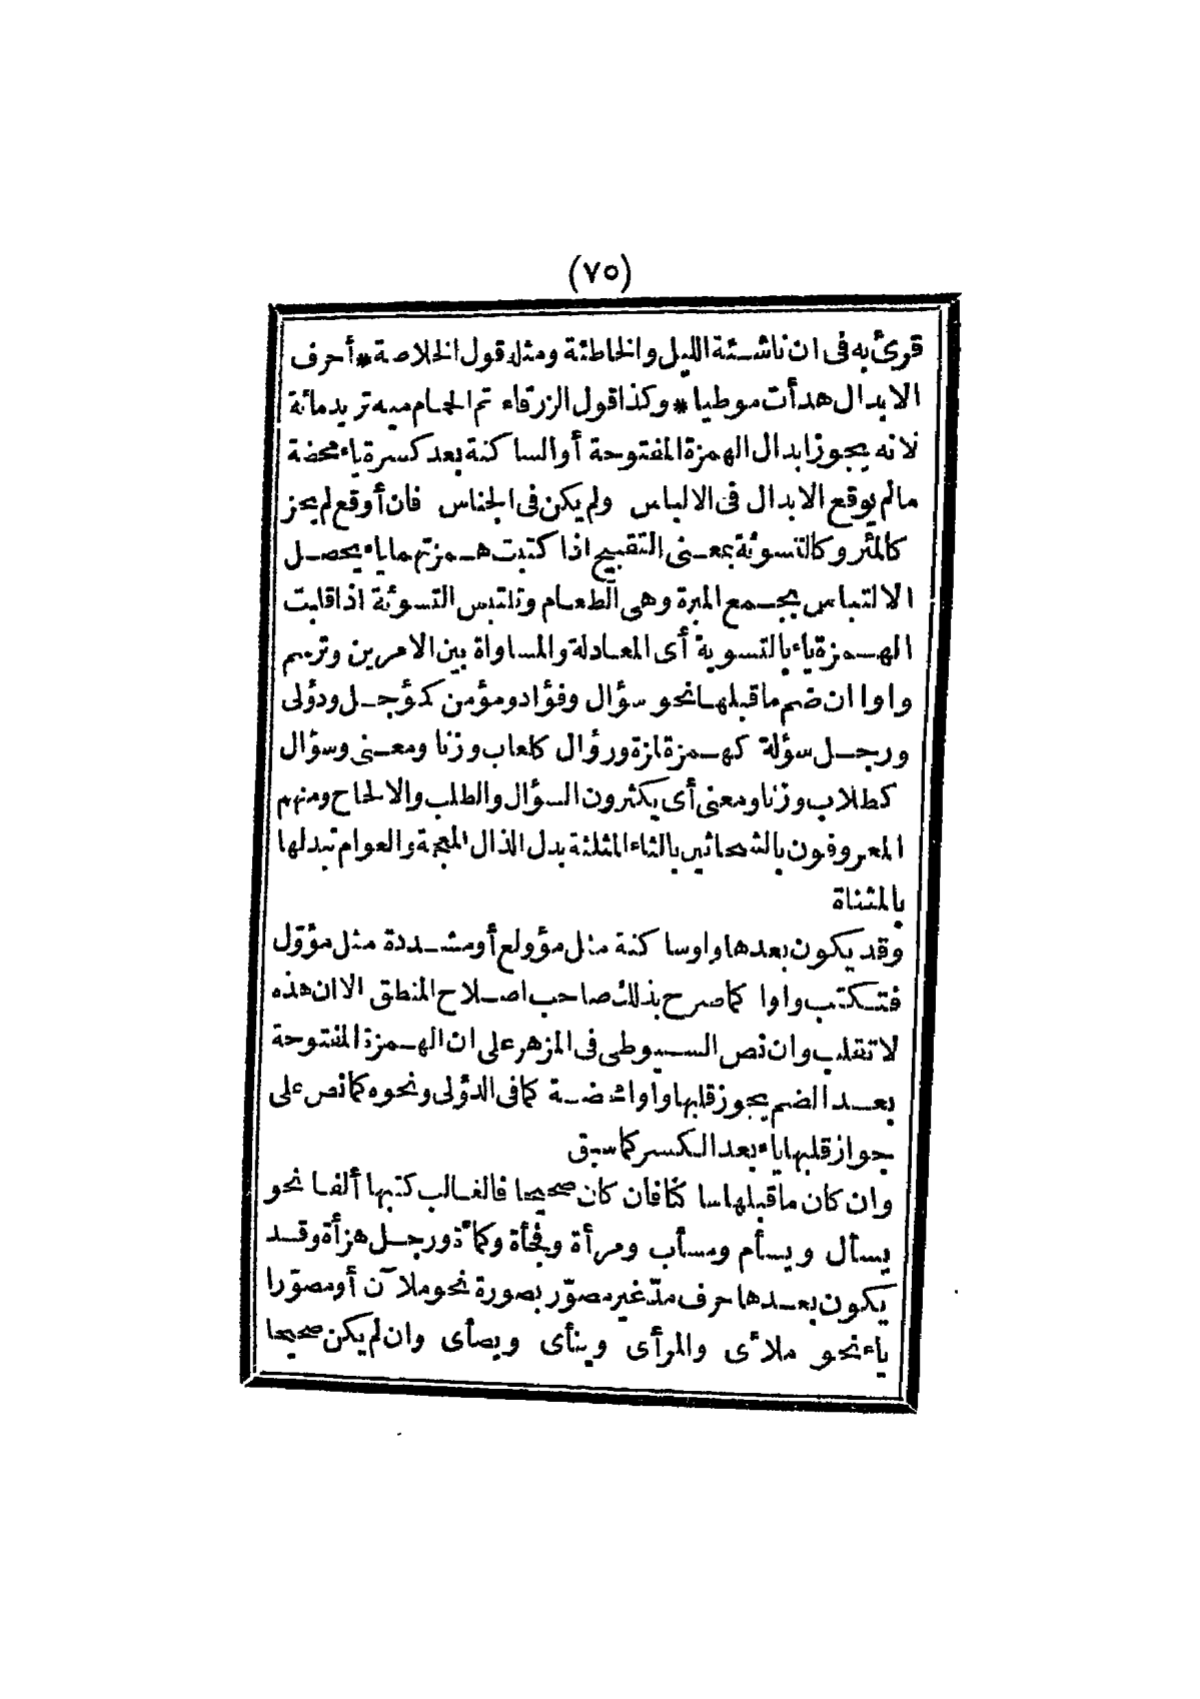 (٧٥)
قرئ به فى ان ناشئة الليل والخاطئة ومثله قول الخلاصة * أحرف
الابدال هدأت موطيا * وكذا قول الزرقاء تم الحمام ميه تريد مائة
لانه يجوز ابدال الهمزة المفتوحة أو الساكنة بعد كسرة ياء محضة
مالم يوقع الابدال فى الالباس ولم يكن فى الجناس فان أوقع لم يجز
كالمئر وكالتسوئة بمعنى التقبيح اذا كتبت همزتهما ياء يحصل
الالتباس بجمع الميرة وهى الطعام وتلتبس التسوئة اذا قلبت
الهمزة ياء بالتسوية أى المعادلة والمساواة بين الامرين وترسم
واوا ان ضم ما قبلها نحو سؤال وفؤاد ومؤمن كمؤجل ودؤلى
ورجل سؤلة كهمزة لمزة ورؤال كلعاب وزنا ومعنى وسؤال
كطلاب وزنا ومعنى أى يكثرون السؤال والطلب والالحاح ومنهم
المعروفون بالشحاثين بالثاء المثلثة بدل الذال المعجمة والعوام تبدلها
بالمثناة
وقد يكون بعدها واو ساكنة مثل مؤولع أو مشددة مثل مؤوّل
فتكتب واوا كما صرح بذلك صاحب اصلاح المنطق الا ان هذه
لا تقلب وان نص السيوطى فى المزهر على ان الهمزة المفتوحة
بعد الضم يجوز قلبها واوا محضة كما فى الدؤلى ونحوه كما نص على
جواز قلبها ياء بعد الكسر كما سبق
وان كان ما قبلها ساكنا فان كان صحيحا فالغالب كتبها ألفا نحو
يسأل ويسأم ومسأب ومرأة وفجأة وكمأة ورجل هزأة وقد
يكون بعدها حرف مدّ غير مصوّر بصورة نحو ملآن أو مصوّرا
ياء نحو ملأى والمرأى وينأى ويصأى وان لم يكن صحيحا